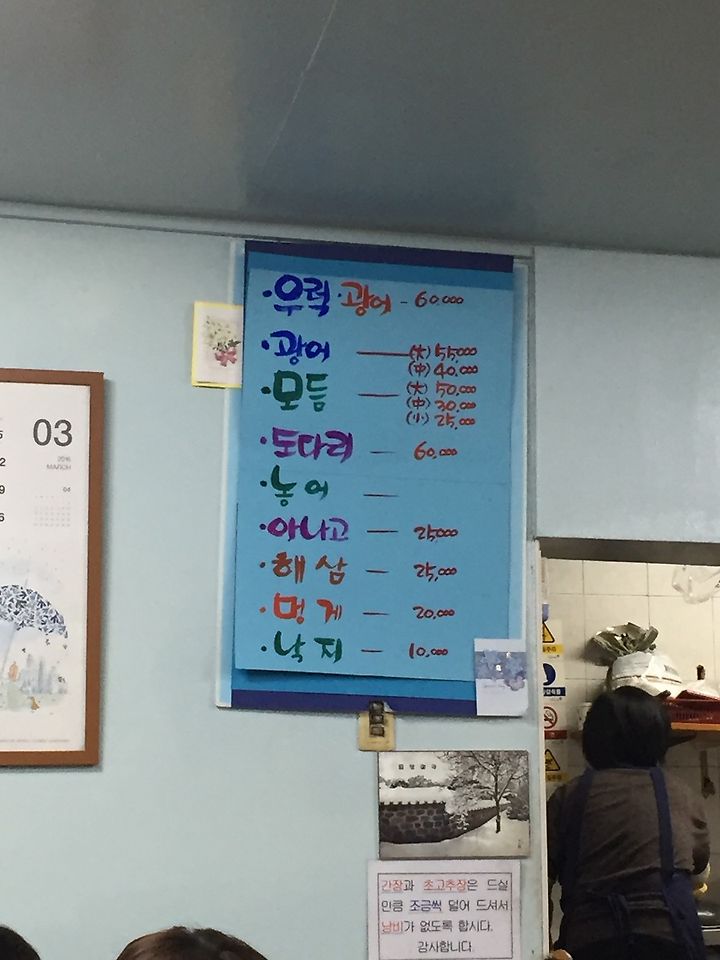 ·우럭·광어 - 60,000
·광어 — (大) 55,000
(中) 40,000
·모듬 — (大) 50,000
(中) 30,000
(小) 25,000
·도다리 — 60,000
·농어 —
·아나고 — 25,000
·해삼 — 25,000
·멍게 — 20,000
·낙지 — 10,000
03
2016
MARCH
04
간장과 초고추장은 드실
만큼 조금씩 덜어 드셔서
낭비가 없도록 합시다.
감사합니다.